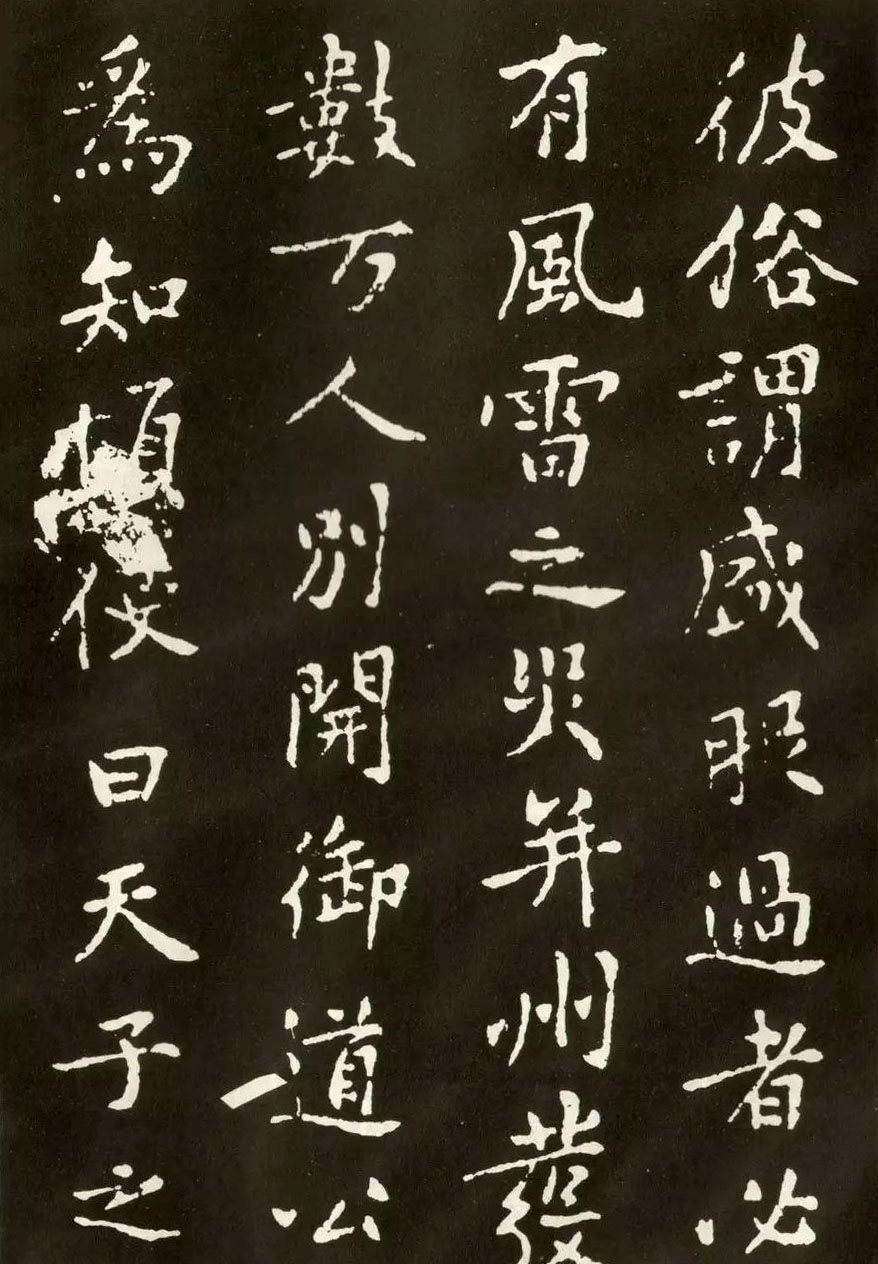 彼俗謂盛服過者必
有風雷之災并州發
數万人別開御道公
爲知頓使曰天子之